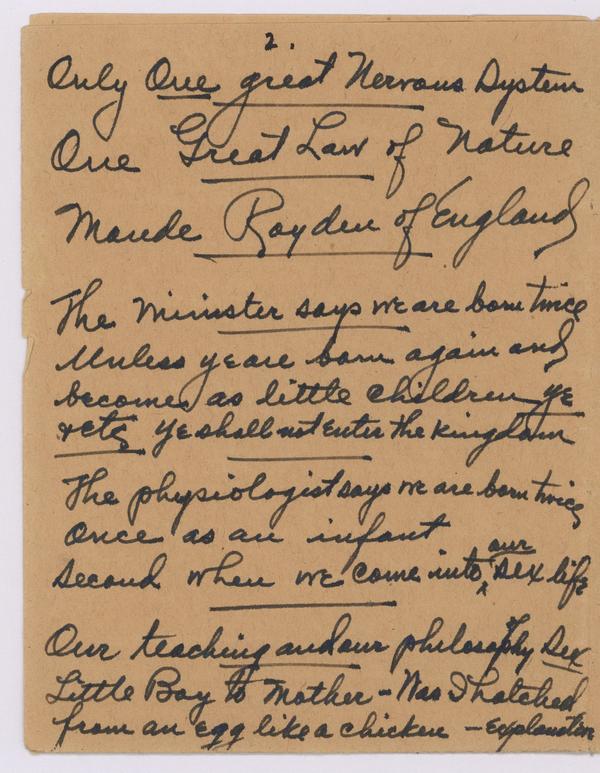 2.
Only One great Nervous System
One Great Law of Nature
Maude Royden of England
The minister says we are born twice
Unless ye are born again and
become as little children ye
&etc ye shall not enter the kingdom
The physiologist says we are born twice
Once as an infant
our
second when we come into sex life
Our teaching and our philosophy Sex
Little Boy to Mother - Was I hatched
from an egg like a chicken - explanation